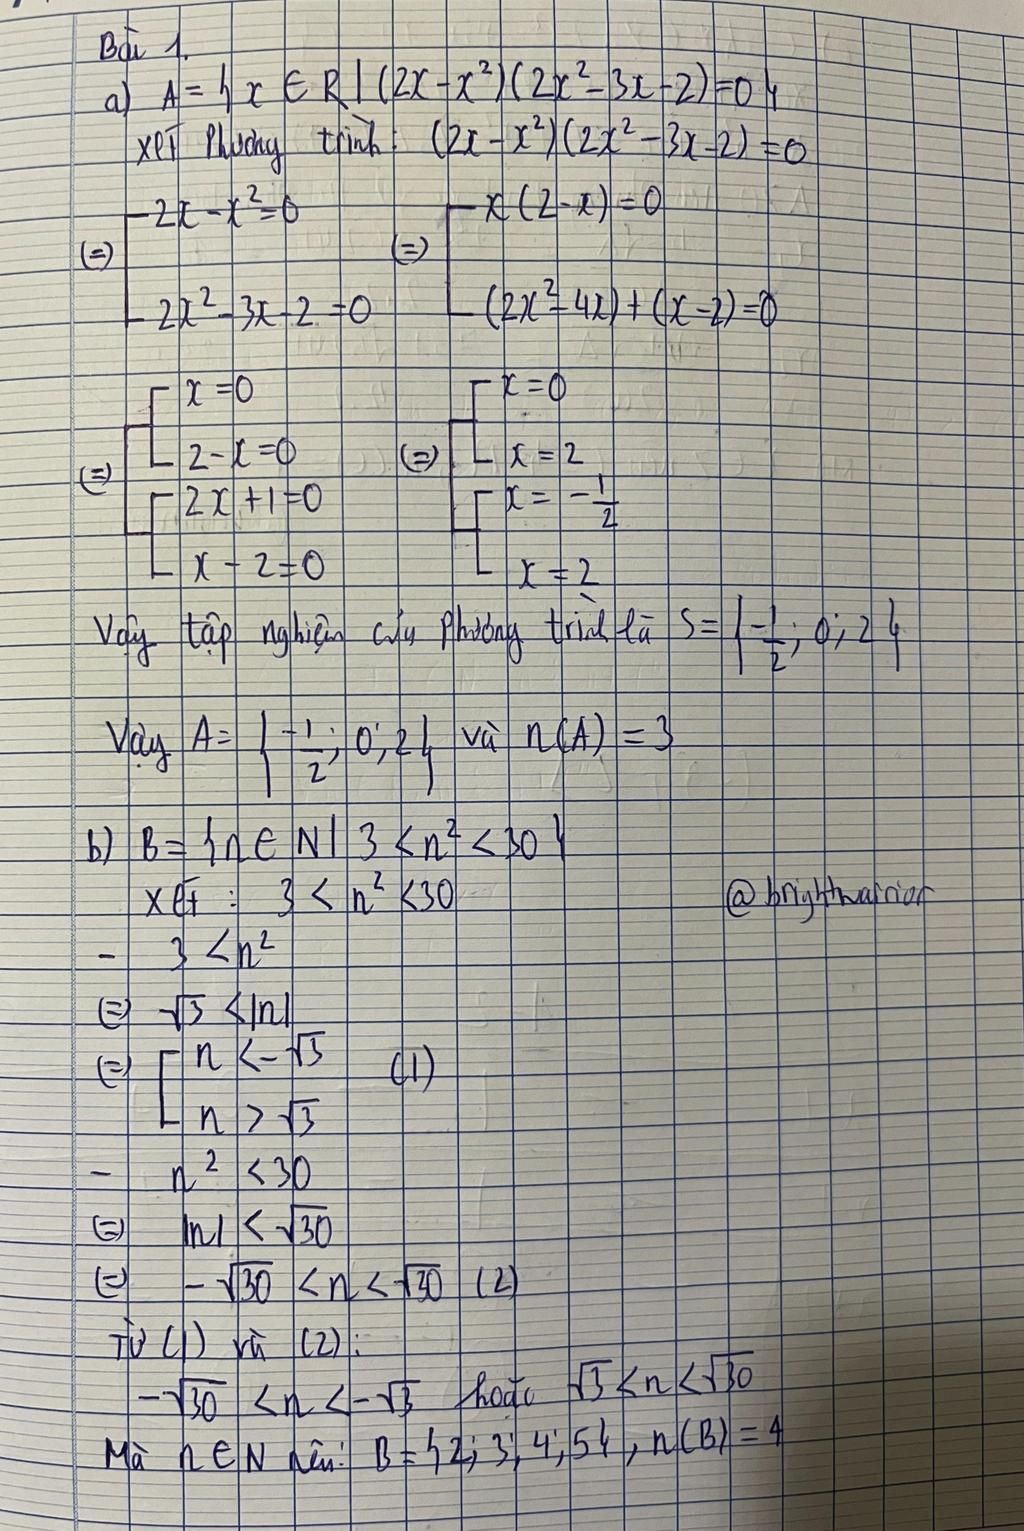 Bài 1.
a) A = { x ∈ R | (2x - x²)(2x² - 3x - 2) = 0 }
xét Phương trình: (2x - x²)(2x² - 3x - 2) = 0
(=) [ 2x - x² = 0 (=) [ x(2 - x) = 0
2x² - 3x - 2 = 0 (2x² - 4x) + (x - 2) = 0
(=) [ [ x = 0 (=) [ [ x = 0
2 - x = 0 x = 2
[ 2x + 1 = 0 [ x = -1/2
x - 2 = 0 x = 2
Vậy tập nghiệm của Phương trình là S = { -1/2; 0; 2 }
Vậy A = { -1/2; 0; 2 } và n(A) = 3
b) B = { n ∈ N | 3 < n² < 30 }
xét: 3 < n² < 30
@brightwarrior
- 3 < n²
(=) √3 < |n|
(=) [ n < -√3 (1)
n > √3
- n² < 30
(=) |n| < √30
(=) -√30 < n < √30 (2)
Từ (1) và (2):
-√30 < n < -√3 hoặc √3 < n < √30
Mà n ∈ N nên: B = { 2; 3; 4; 5 }, n(B) = 4